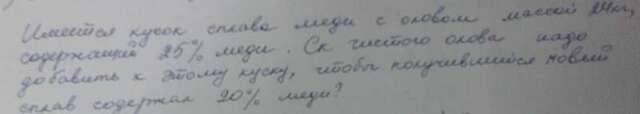 Имеется кусок сплава меди с оловом массой кг,
содержащий 25% меди. Ск. чистого олова надо
добавить к этому куску, чтобы получившийся новый
сплав содержал 20% меди?